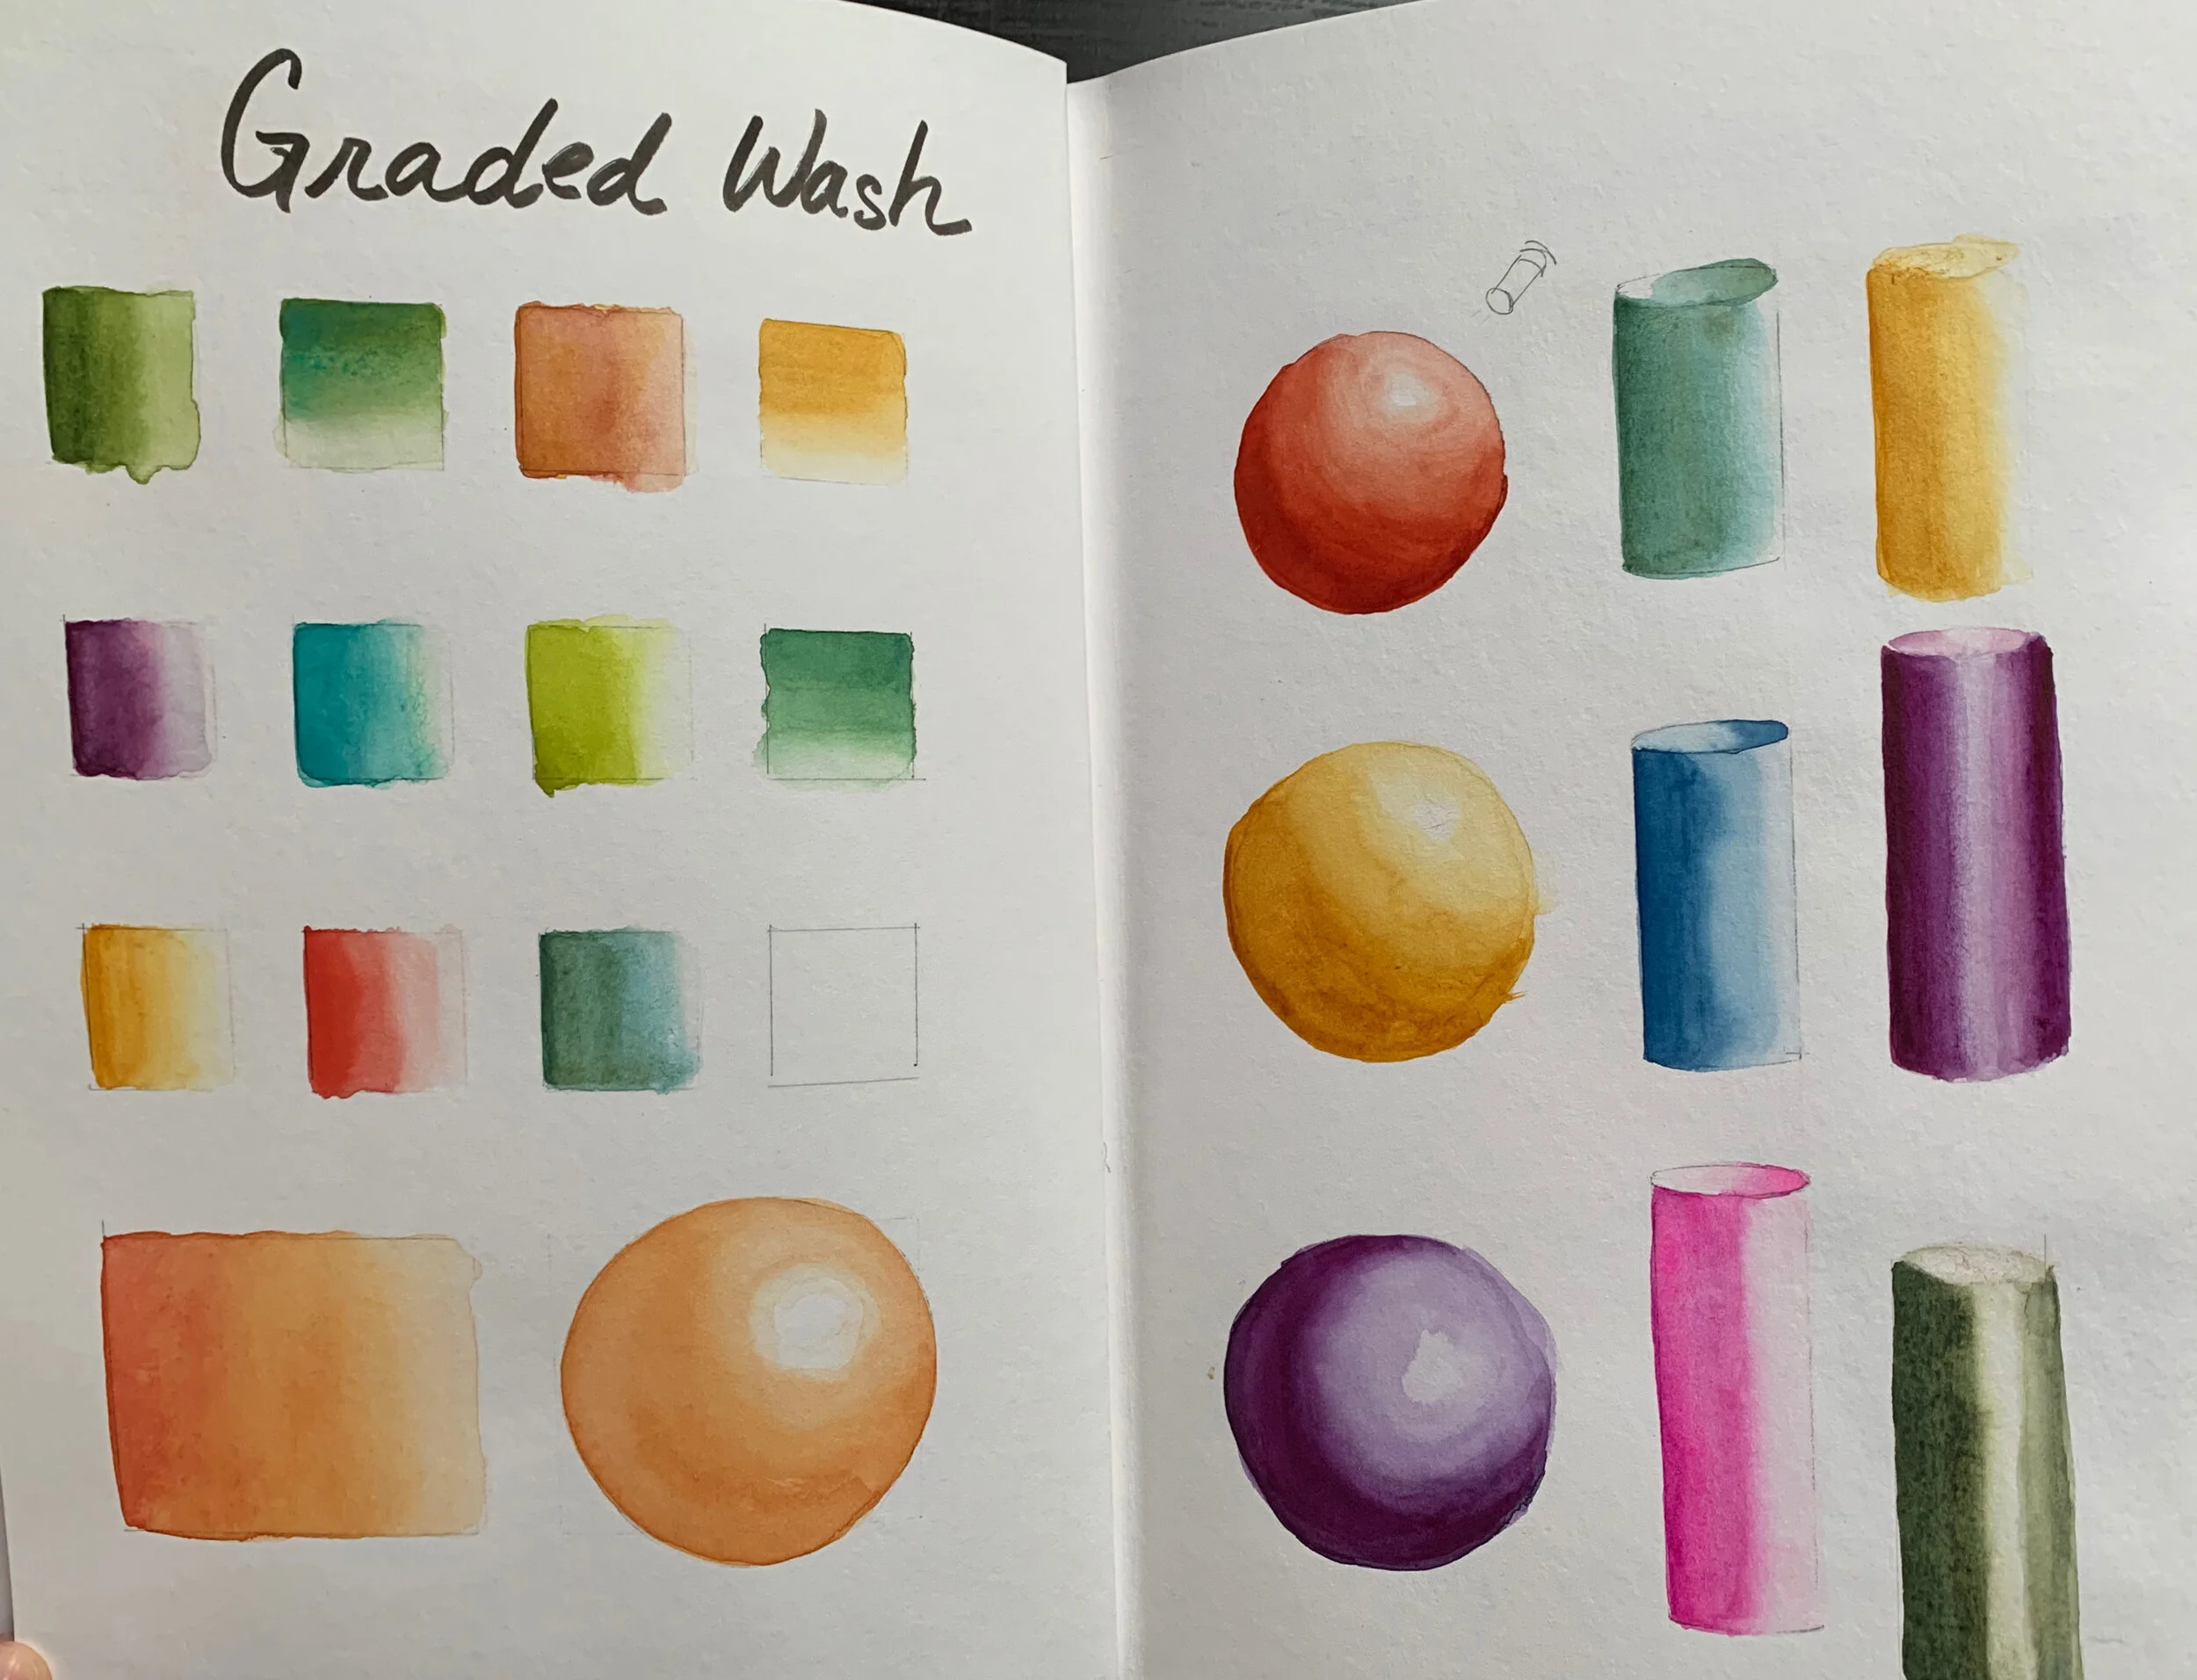 Graded Wash